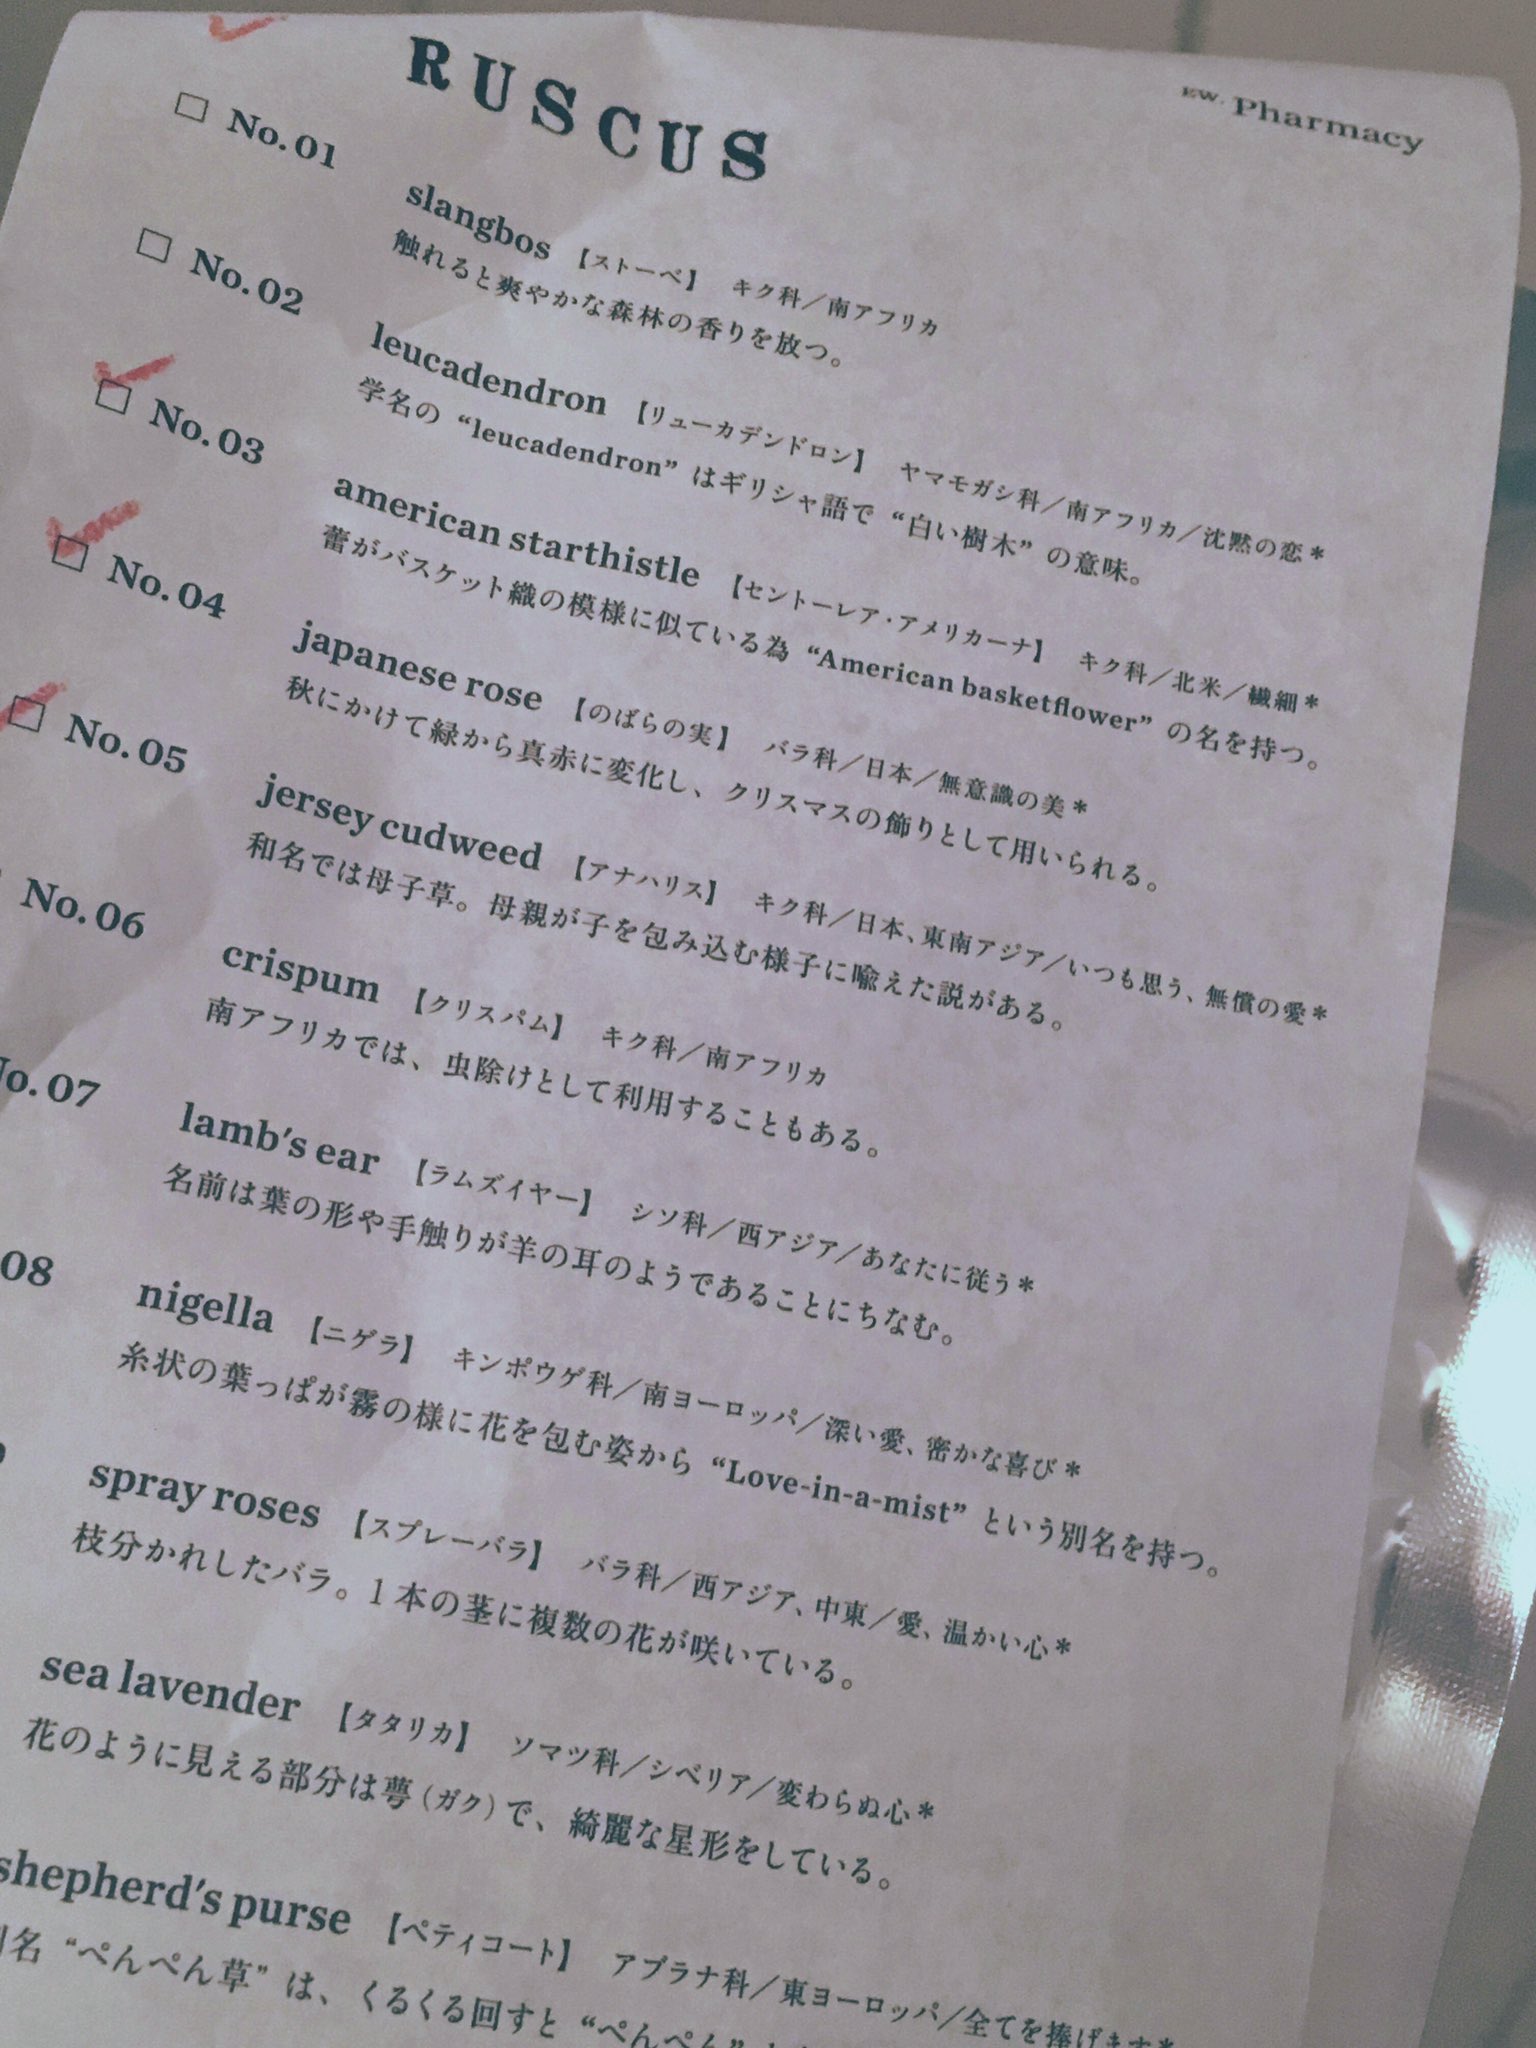 RUSCUS
EW. Pharmacy
No. 01
slangbos 【ストーベ】 キク科／南アフリカ
触れると爽やかな森林の香りを放つ。
No. 02
leucadendron 【リューカデンドロン】 ヤマモガシ科／南アフリカ／沈黙の恋＊
学名の“leucadendron”はギリシャ語で“白い樹木”の意味。
No. 03
american starthistle 【セントーレア・アメリカーナ】 キク科／北米／繊細＊
蕾がバスケット織の模様に似ている為“American basketflower”の名を持つ。
No. 04
japanese rose 【のばらの実】 バラ科／日本／無意識の美＊
秋にかけて緑から真赤に変化し、クリスマスの飾りとして用いられる。
No. 05
jersey cudweed 【アナハリス】 キク科／日本、東南アジア／いつも思う、無償の愛＊
和名では母子草。母親が子を包み込む様子に喩えた説がある。
No. 06
crispum 【クリスパム】 キク科／南アフリカ
南アフリカでは、虫除けとして利用することもある。
No. 07
lamb's ear 【ラムズイヤー】 シソ科／西アジア／あなたに従う＊
名前は葉の形や手触りが羊の耳のようであることにちなむ。
08
nigella 【ニゲラ】 キンポウゲ科／南ヨーロッパ／深い愛、密かな喜び＊
糸状の葉っぱが霧の様に花を包む姿から“Love-in-a-mist”という別名を持つ。
spray roses 【スプレーバラ】 バラ科／西アジア、中東／愛、温かい心＊
枝分かれしたバラ。1本の茎に複数の花が咲いている。
sea lavender 【タタリカ】 ソマツ科／シベリア／変わらぬ心＊
花のように見える部分は萼（ガク）で、綺麗な星形をしている。
shepherd's purse 【ペティコート】 アブラナ科／東ヨーロッパ／全てを捧げます＊
名“ぺんぺん草”は、くるくる回すと“ぺんぺん”